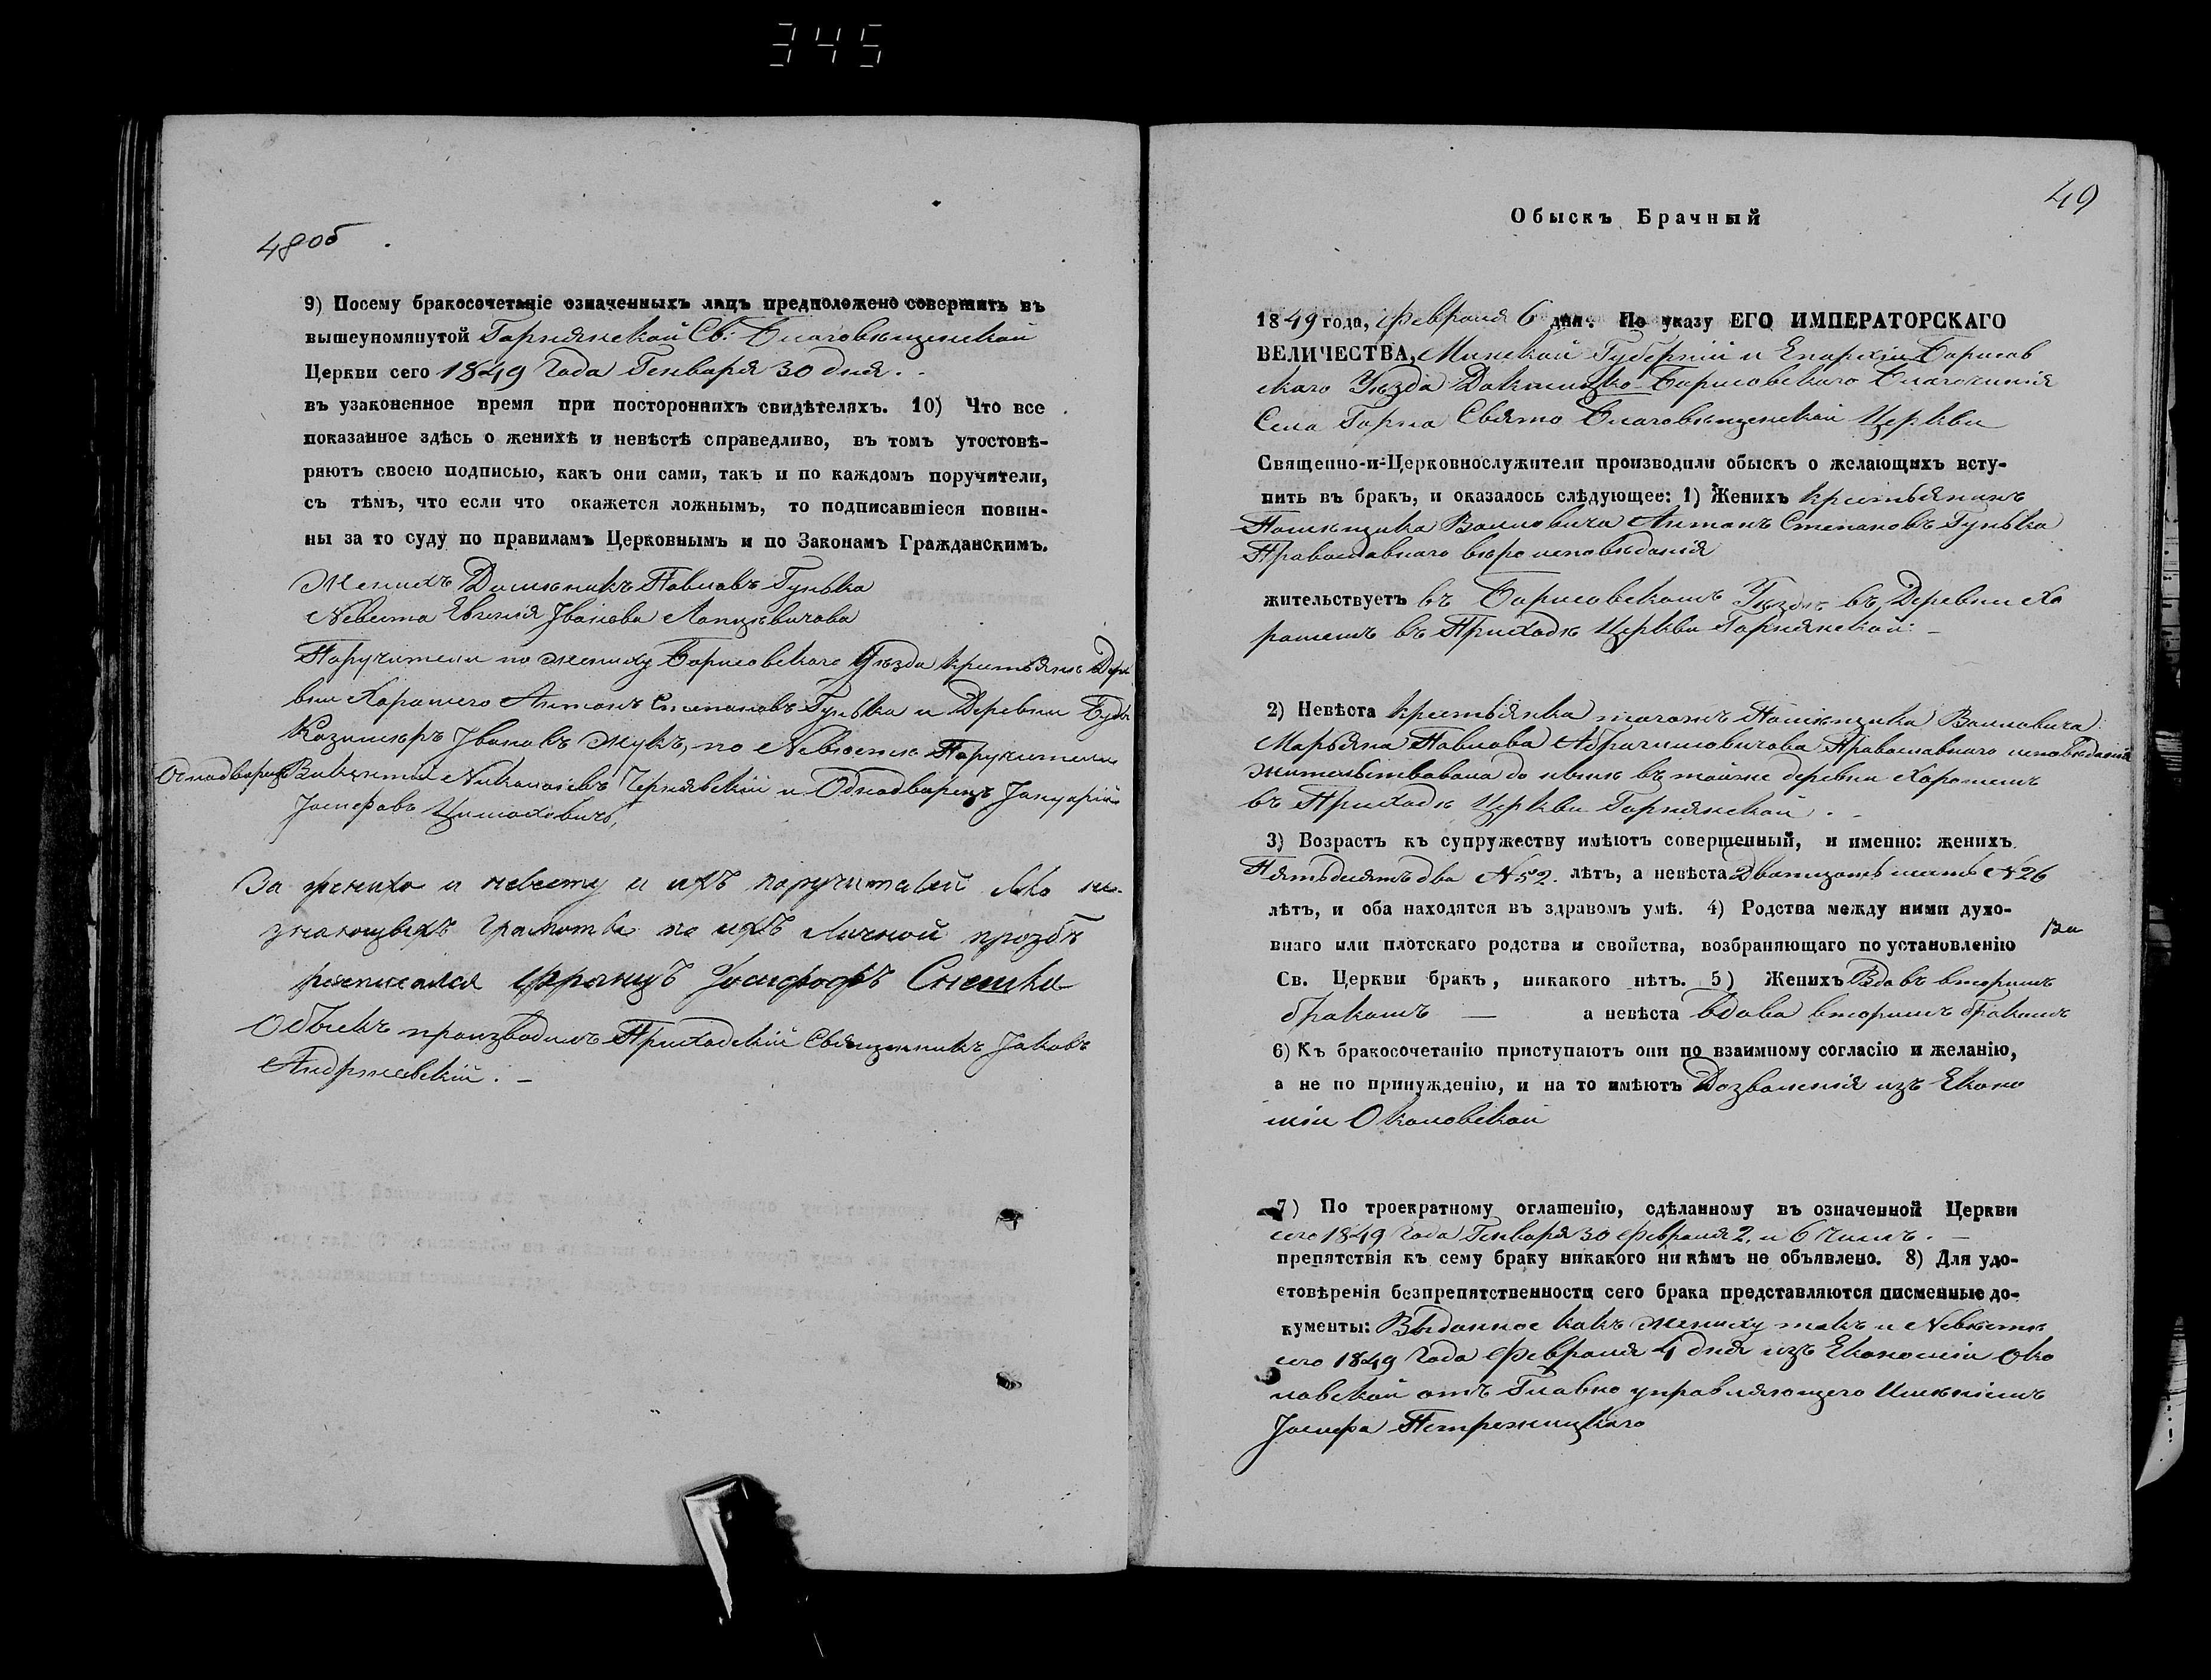 345
48об
9) Посему бракосочетаніе означенныхъ лицъ предположено совершить въ
вышеупомянутой Горнянской Св: Благовѣщенской
Церкви сего 1849 Года Генваря 30 дня.
въ узаконенное время при постороннихъ свидѣтеляхъ. 10) Что все
показанное здѣсь о женихѣ и невѣстѣ справедливо, въ томъ утостовѣ-
ряютъ своею подписью, какъ они сами, такъ и по каждомъ поручители,
съ тѣмъ, что если что окажется ложнымъ, то подписавшіеся повин-
ны за то суду по правиламъ Церковнымъ и по Законамъ Гражданскимъ.
Женихъ Павловъ Гунька
Невѣста Евгенія Іванова
Поручители по жениху Борисовскаго Уѣзда крестьяне Дере
вни Хорошего Антонъ Степановъ Гунька и Деревни
Казимеръ Івановъ Жукъ, по Невѣсте Поручители
Однодворецъ Викентій Николаевъ Чернявскій и Однодворецъ Януарій
Іосифовъ
За жениха и невесту и ихъ поручителей яко не-
знающихъ грамоты по ихъ личной прозбѣ
росписался Францъ Іосифовъ
Обыскъ производилъ Приходскій Священникъ Іаковъ
Андржеевскій.
49
Обыскъ Брачный
1849 года, Февраля 6 дня. По указу ЕГО ИМПЕРАТОРСКАГО
ВЕЛИЧЕСТВА, Минской Губерніи и Епархіи Борисов
скаго Уѣзда Докшицко-Борисовскаго Благочинія
Села Горна Свято Благовѣщенской Церкви
Священно-и-Церковнослужители производили обыскъ о желающихъ всту-
пить въ бракъ, и оказалось слѣдующее: 1) Женихъ крестьянинъ
Помѣщика Воловича Антонъ Степановъ Гунька
Православнаго вѣроисповѣданія
жительствуетъ въ Борисовскомъ Уѣздѣ въ Деревни Хо
рошемъ въ Приходѣ Церкви Горнянской
2) Невѣста крестьянка тогожъ Помѣщика Воловича
Марьяна Павлова Абрагимовичова Православнаго исповѣданія
жительствовала до нынѣ въ тойже деревни Хорошемъ
въ Приходѣ Церкви Горнянской.
3) Возрастъ къ супружеству имѣютъ совершенный, и именно: женихъ
Пятьдесятъ два N 52. лѣтъ, а невѣста Дваццать шесть N 26
лѣтъ, и оба находятся въ здравомъ умѣ. 4) Родства между ними духо-
внаго или плотскаго родства и свойства, возбраняющаго по установленію
Св. Церкви бракъ, никакого нѣтъ. 5) Женихъ Вдовъ вторымъ
бракомъ — а невѣста вдова вторымъ бракомъ
6) Къ бракосочетанію приступаютъ они по взаимному согласію и желанію,
а не по принужденію, и на то имѣютъ Дозволенія изъ Еконо
міи Околовской
7) По троекратному оглашенію, сдѣланному въ означенной Церкви
сего 1849 Года Генваря 30 Февраля 2, и 6 чиселъ.
препятствія къ сему браку никакого ни кѣмъ не объявлено. 8) Для удо-
стовѣренія безпрепятственности сего брака представляются писменные до-
кументы: Выданное какъ жениху такъ и Невѣсте
сего 1849 Года Февраля 4 дня изъ Економіи Око
ловской отъ Главно управляющего Имѣніемъ
Іосифа